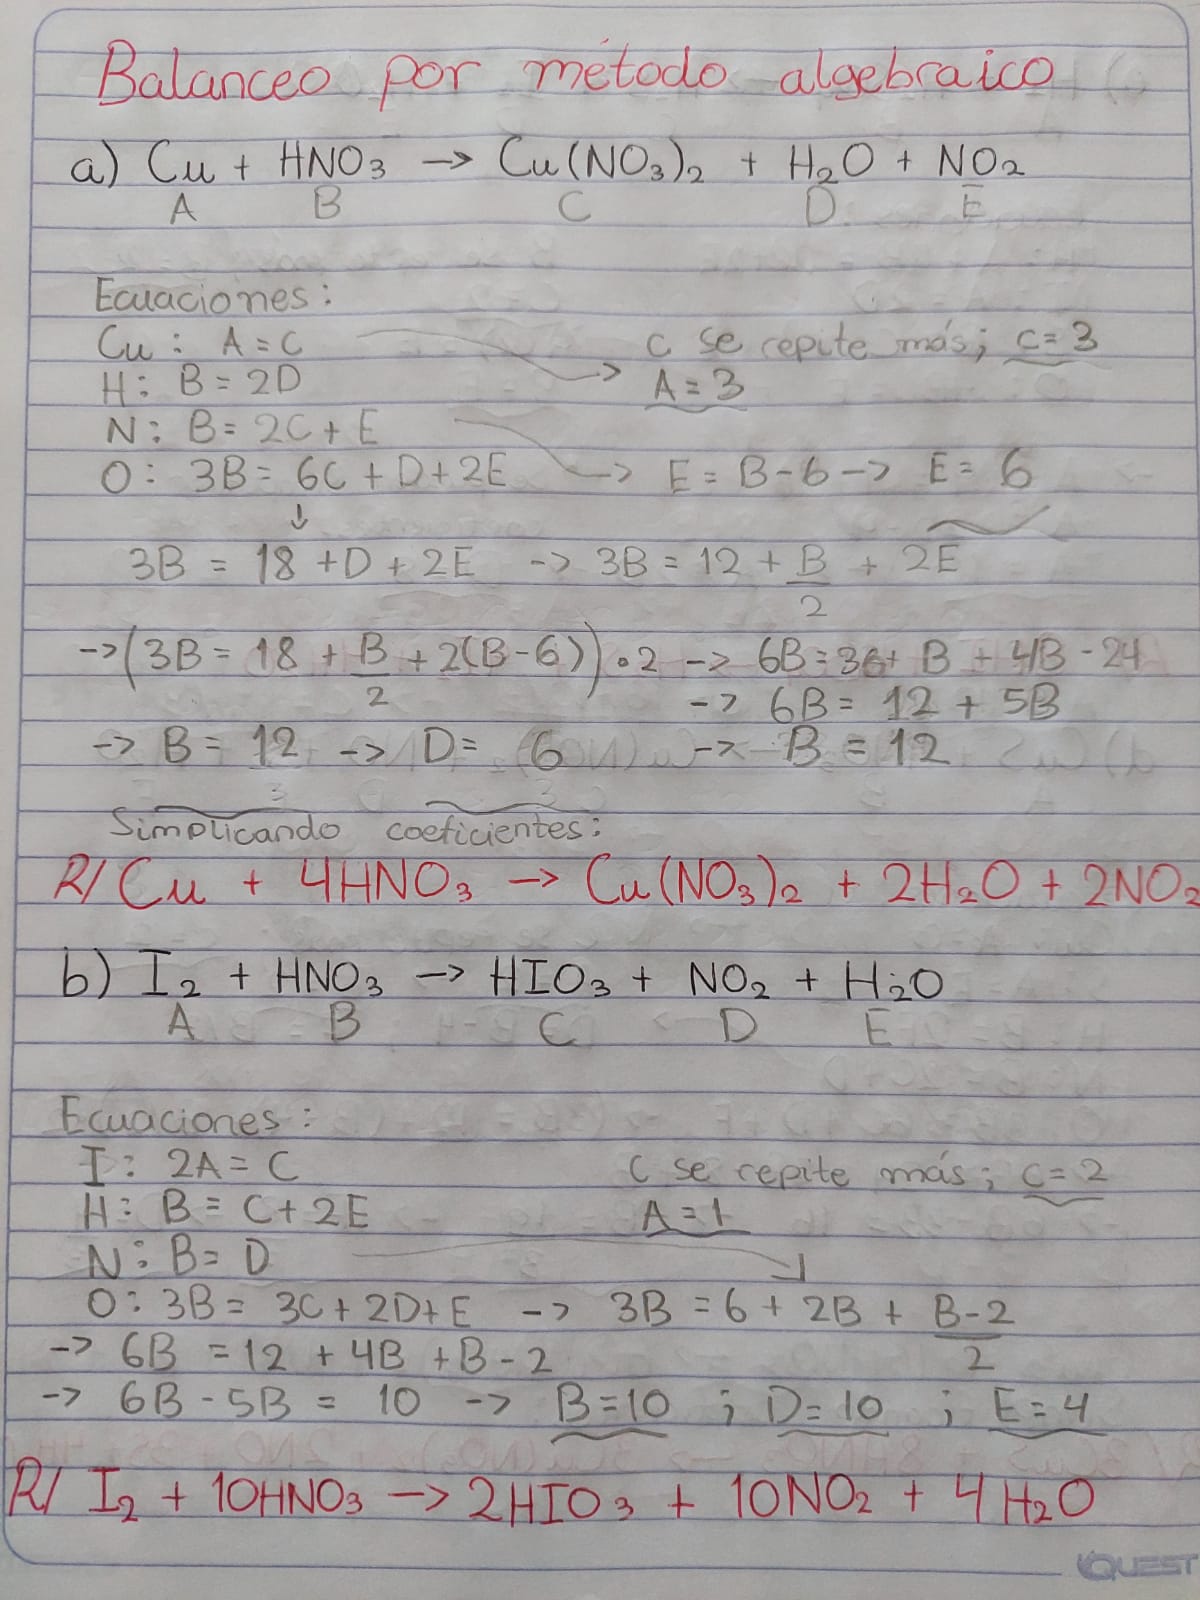 Balanceo por método algebraico
a) Cu + HNO₃ → Cu(NO₃)₂ + H₂O + NO₂
A B C D E
Ecuaciones:
Cu: A = C C se repite más; C = 3
H: B = 2D → A = 3
N: B = 2C + E
O: 3B = 6C + D + 2E → E = B - 6 → E = 6
↓
3B = 18 + D + 2E → 3B = 12 + B/2 + 2E
→ (3B = 18 + B/2 + 2(B-6)) • 2 → 6B = 36 + B + 4B - 24
→ 6B = 12 + 5B
→ B = 12 → D = 6 → B = 12
Simplicando coeficientes:
R/ Cu + 4HNO₃ → Cu(NO₃)₂ + 2H₂O + 2NO₂
b) I₂ + HNO₃ → HIO₃ + NO₂ + H₂O
A B C D E
Ecuaciones:
I: 2A = C C se repite más; C = 2
H: B = C + 2E A = 1
N: B = D
O: 3B = 3C + 2D + E → 3B = 6 + 2B + B-2/2
→ 6B = 12 + 4B + B - 2
→ 6B - 5B = 10 → B = 10 ; D = 10 ; E = 4
R/ I₂ + 10HNO₃ → 2HIO₃ + 10NO₂ + 4H₂O
QUEST